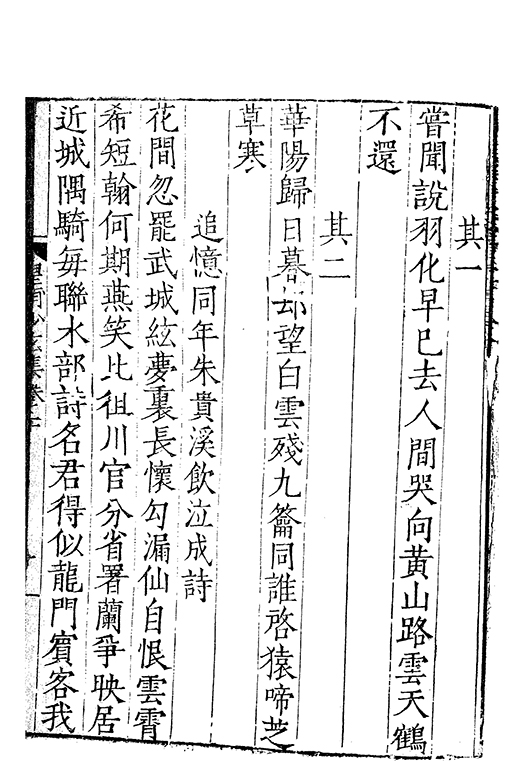 其一
嘗聞說羽化早已去人間哭向黄山路雲天鶴
不還
其二
華陽歸日暮却望白雲殘九籥同誰啓猿啼芝
草寒
追憶同年朱貴溪飲泣成詩
花間忽罷武城絃夢裏長懷勾漏仙自恨雲霄
希短翰何期燕笑比徂川官分省署蘭爭映居
近城隅騎每聯水部詩名君得似龍門賓客我